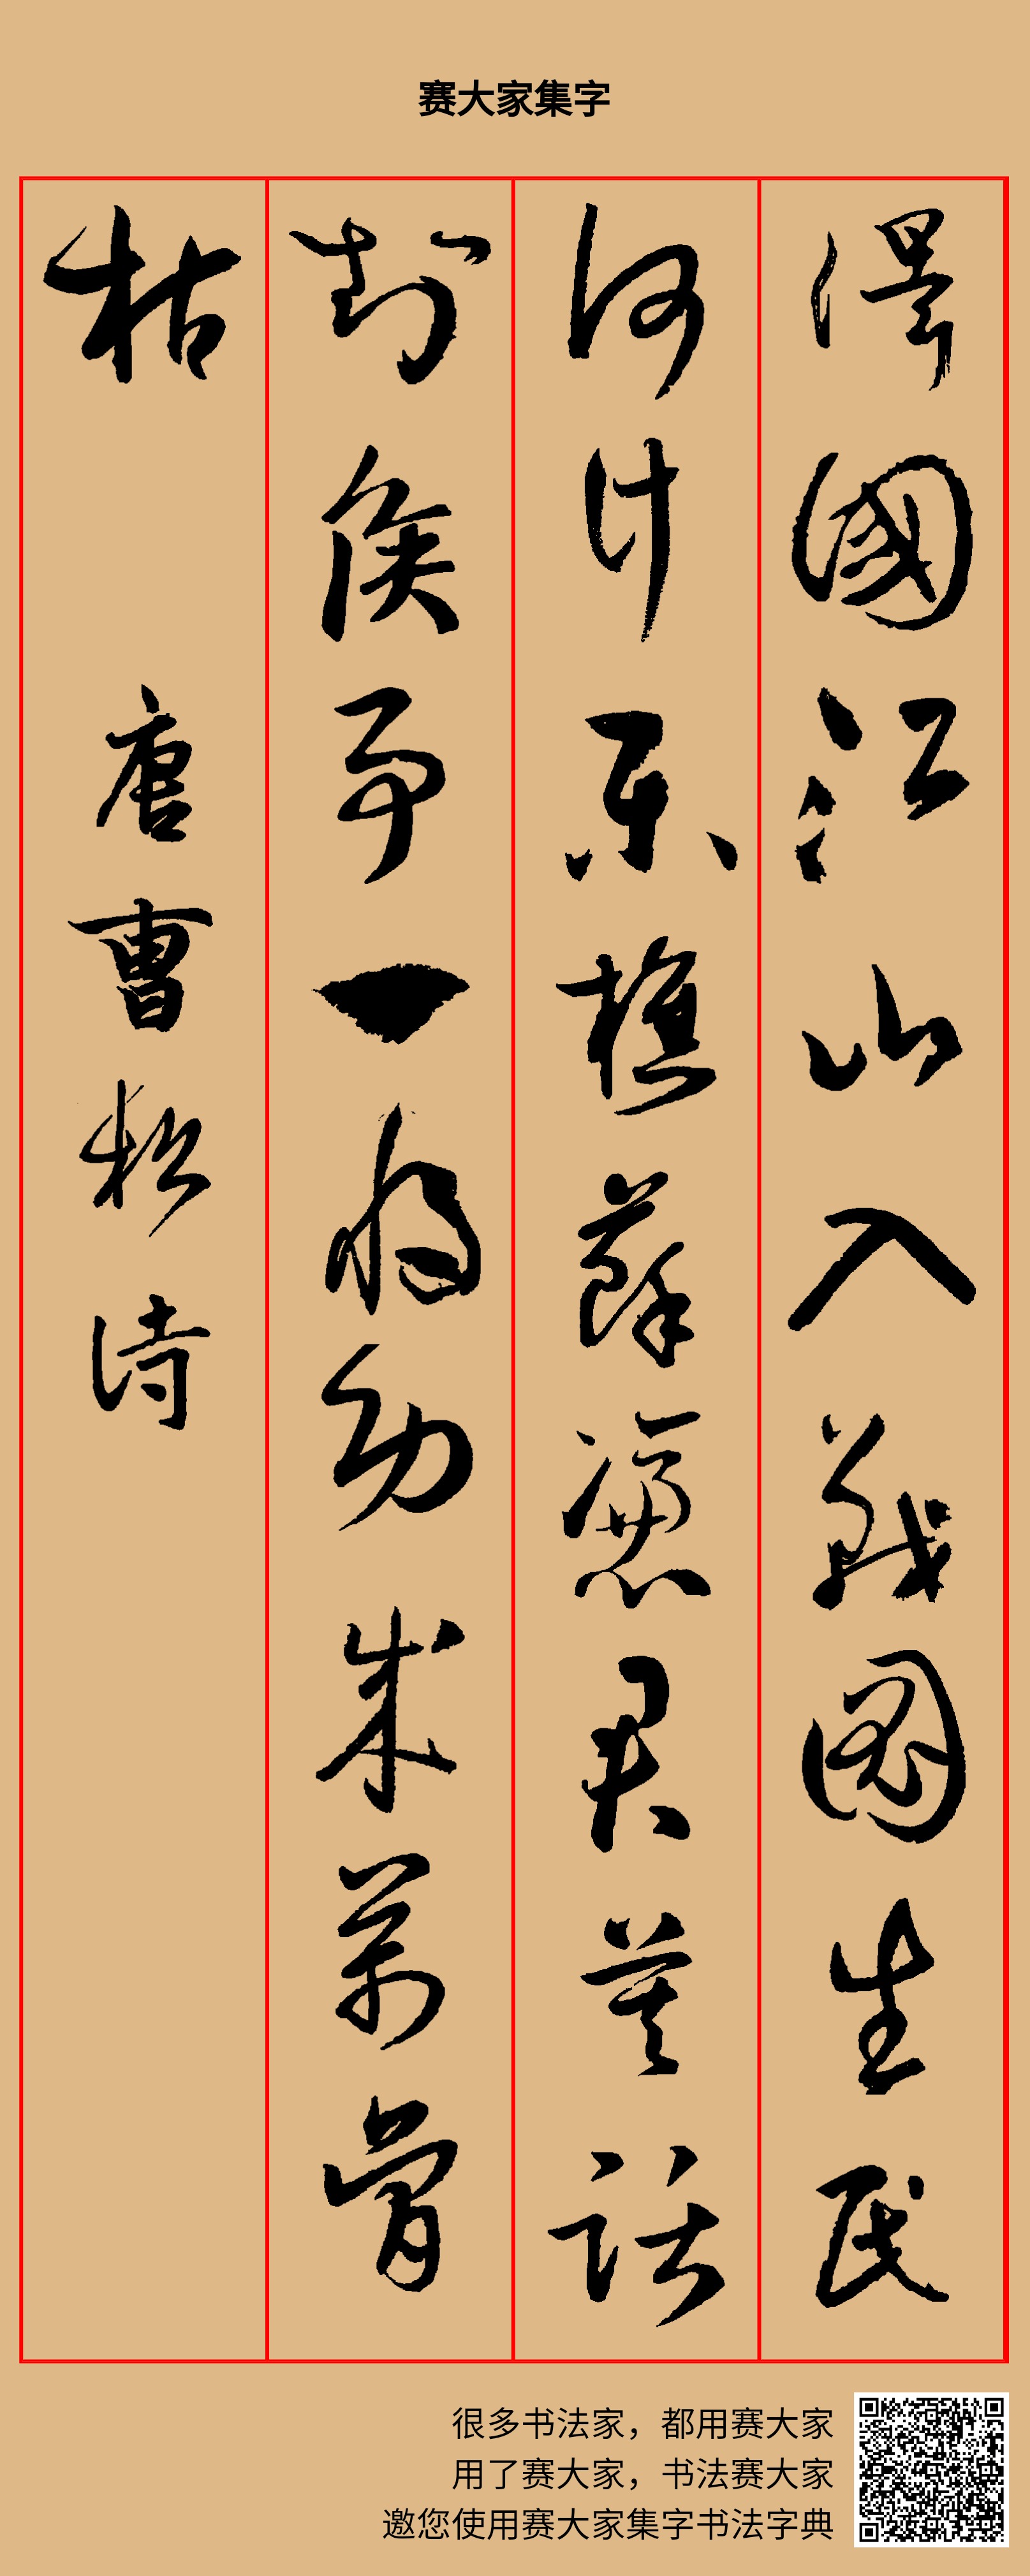 赛大家集字
澤國江山入戰圖生民
何計樂樵蘇憑君莫話
封侯事一將功成萬骨
枯 唐曹松詩
很多书法家，都用赛大家
用了赛大家，书法赛大家
邀您使用赛大家集字书法字典